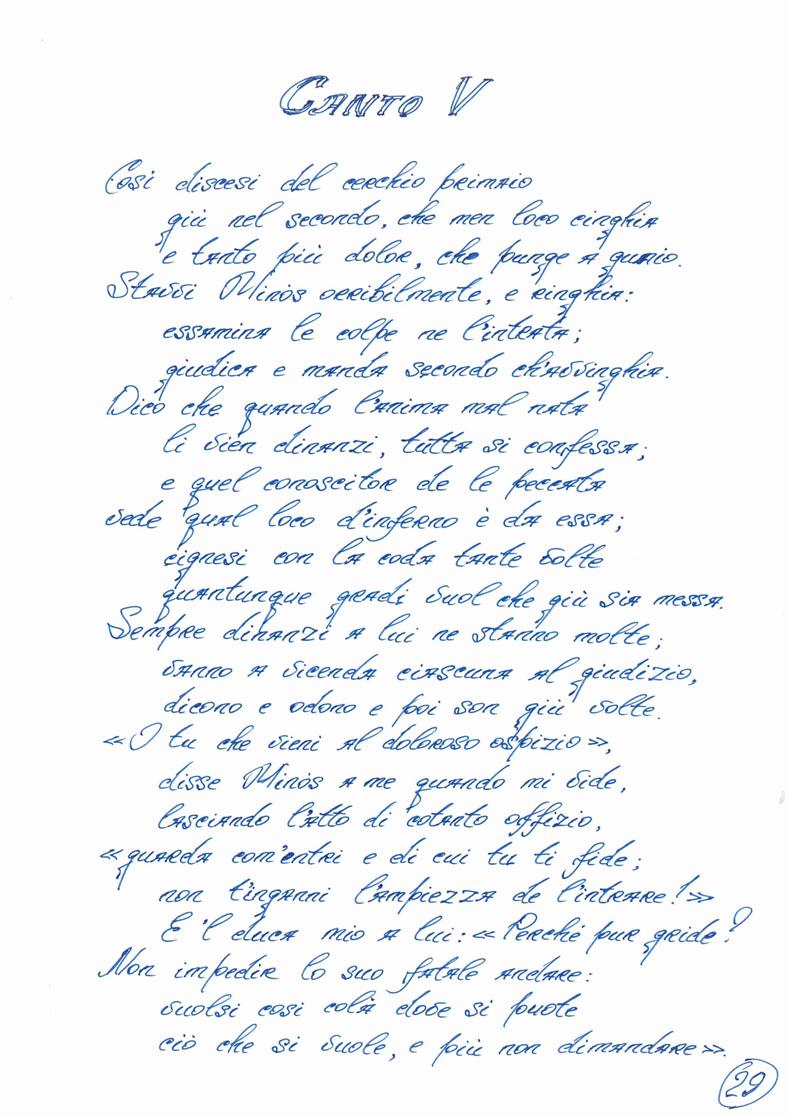 Canto V
Così discesi del cerchio primaio
giù nel secondo, che men loco cinghia
e tanto più dolor, che punge a guaio.
Stavvi Minòs orribilmente, e ringhia:
essamina le colpe ne l'intrata;
giudica e manda secondo ch'avvinghia.
Dico che quando l'anima mal nata
li vien dinanzi, tutta si confessa;
e quel conoscitor de le peccata
vede qual loco d'inferno è da essa;
cignesi con la coda tante volte
quantunque gradi vuol che giù sia messa.
Sempre dinanzi a lui ne stanno molte;
vanno a vicenda ciascuna al giudizio,
dicono e odono e poi son giù volte.
«O tu che vieni al doloroso ospizio»,
disse Minòs a me quando mi vide,
lasciando l'atto di cotanto offizio,
«guarda com'entri e di cui tu ti fide;
non t'inganni l'ampiezza de l'intrare!»
E 'l duca mio a lui: «Perché pur gride?
Non impedir lo suo fatale andare:
vuolsi così colà dove si puote
ciò che si vuole, e più non dimandare».
29